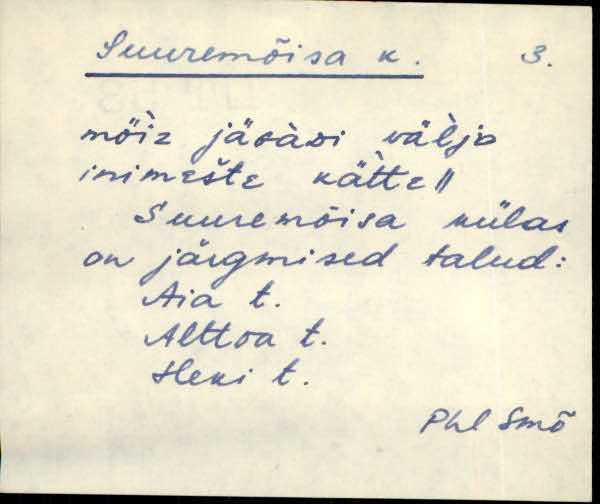 Suuremõisa k. 3.
mȫ̀iz jäɢàʙi väl̀jᴅ
inimešte kätte ||
Suuremõisa külas
on järgmised talud:
Aia t.
Alttoa t.
Heki t.
Phl Smõ